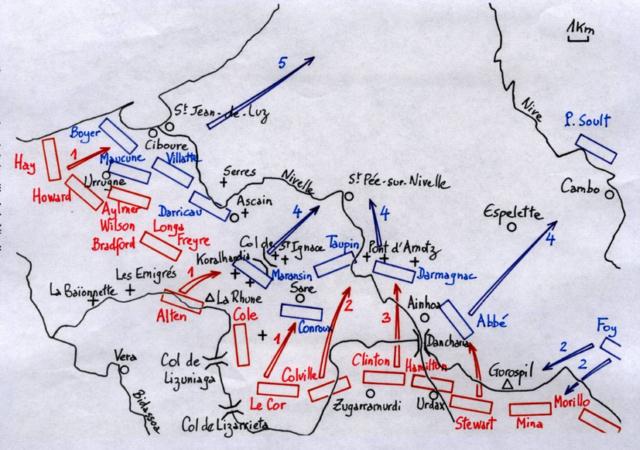 1Km
5
St Jean-de-Luz
Nive
P. Soult
Boyer
Ciboure
Hay
1
Maucune
Villatte
Urrugne
Serres
Nivelle
St Pée-sur-Nivelle
Cambo
Howard
Aylmer
Wilson
Darricau
Ascain
4
4
Espelette
4
Bradford
Longa
Freyre
Col de St Ignace
Taupin
Pont d'Amotz
Koralhandia
Maransin
Darmagnac
Les Emigrés
1
La Baïonnette
Alten
La Rhune
Sare
Conroux
Ainhoa
Abbé
Cole
2
3
Foy
Vera
Col de
Lizuniaga
1
Colville
Clinton
Hamilton
Dancharia
2
2
Gorospil
Le Cor
Zugarramurdi
Urdax
Stewart
Mina
Morillo
Bidassoa
Col de Lizarrieta